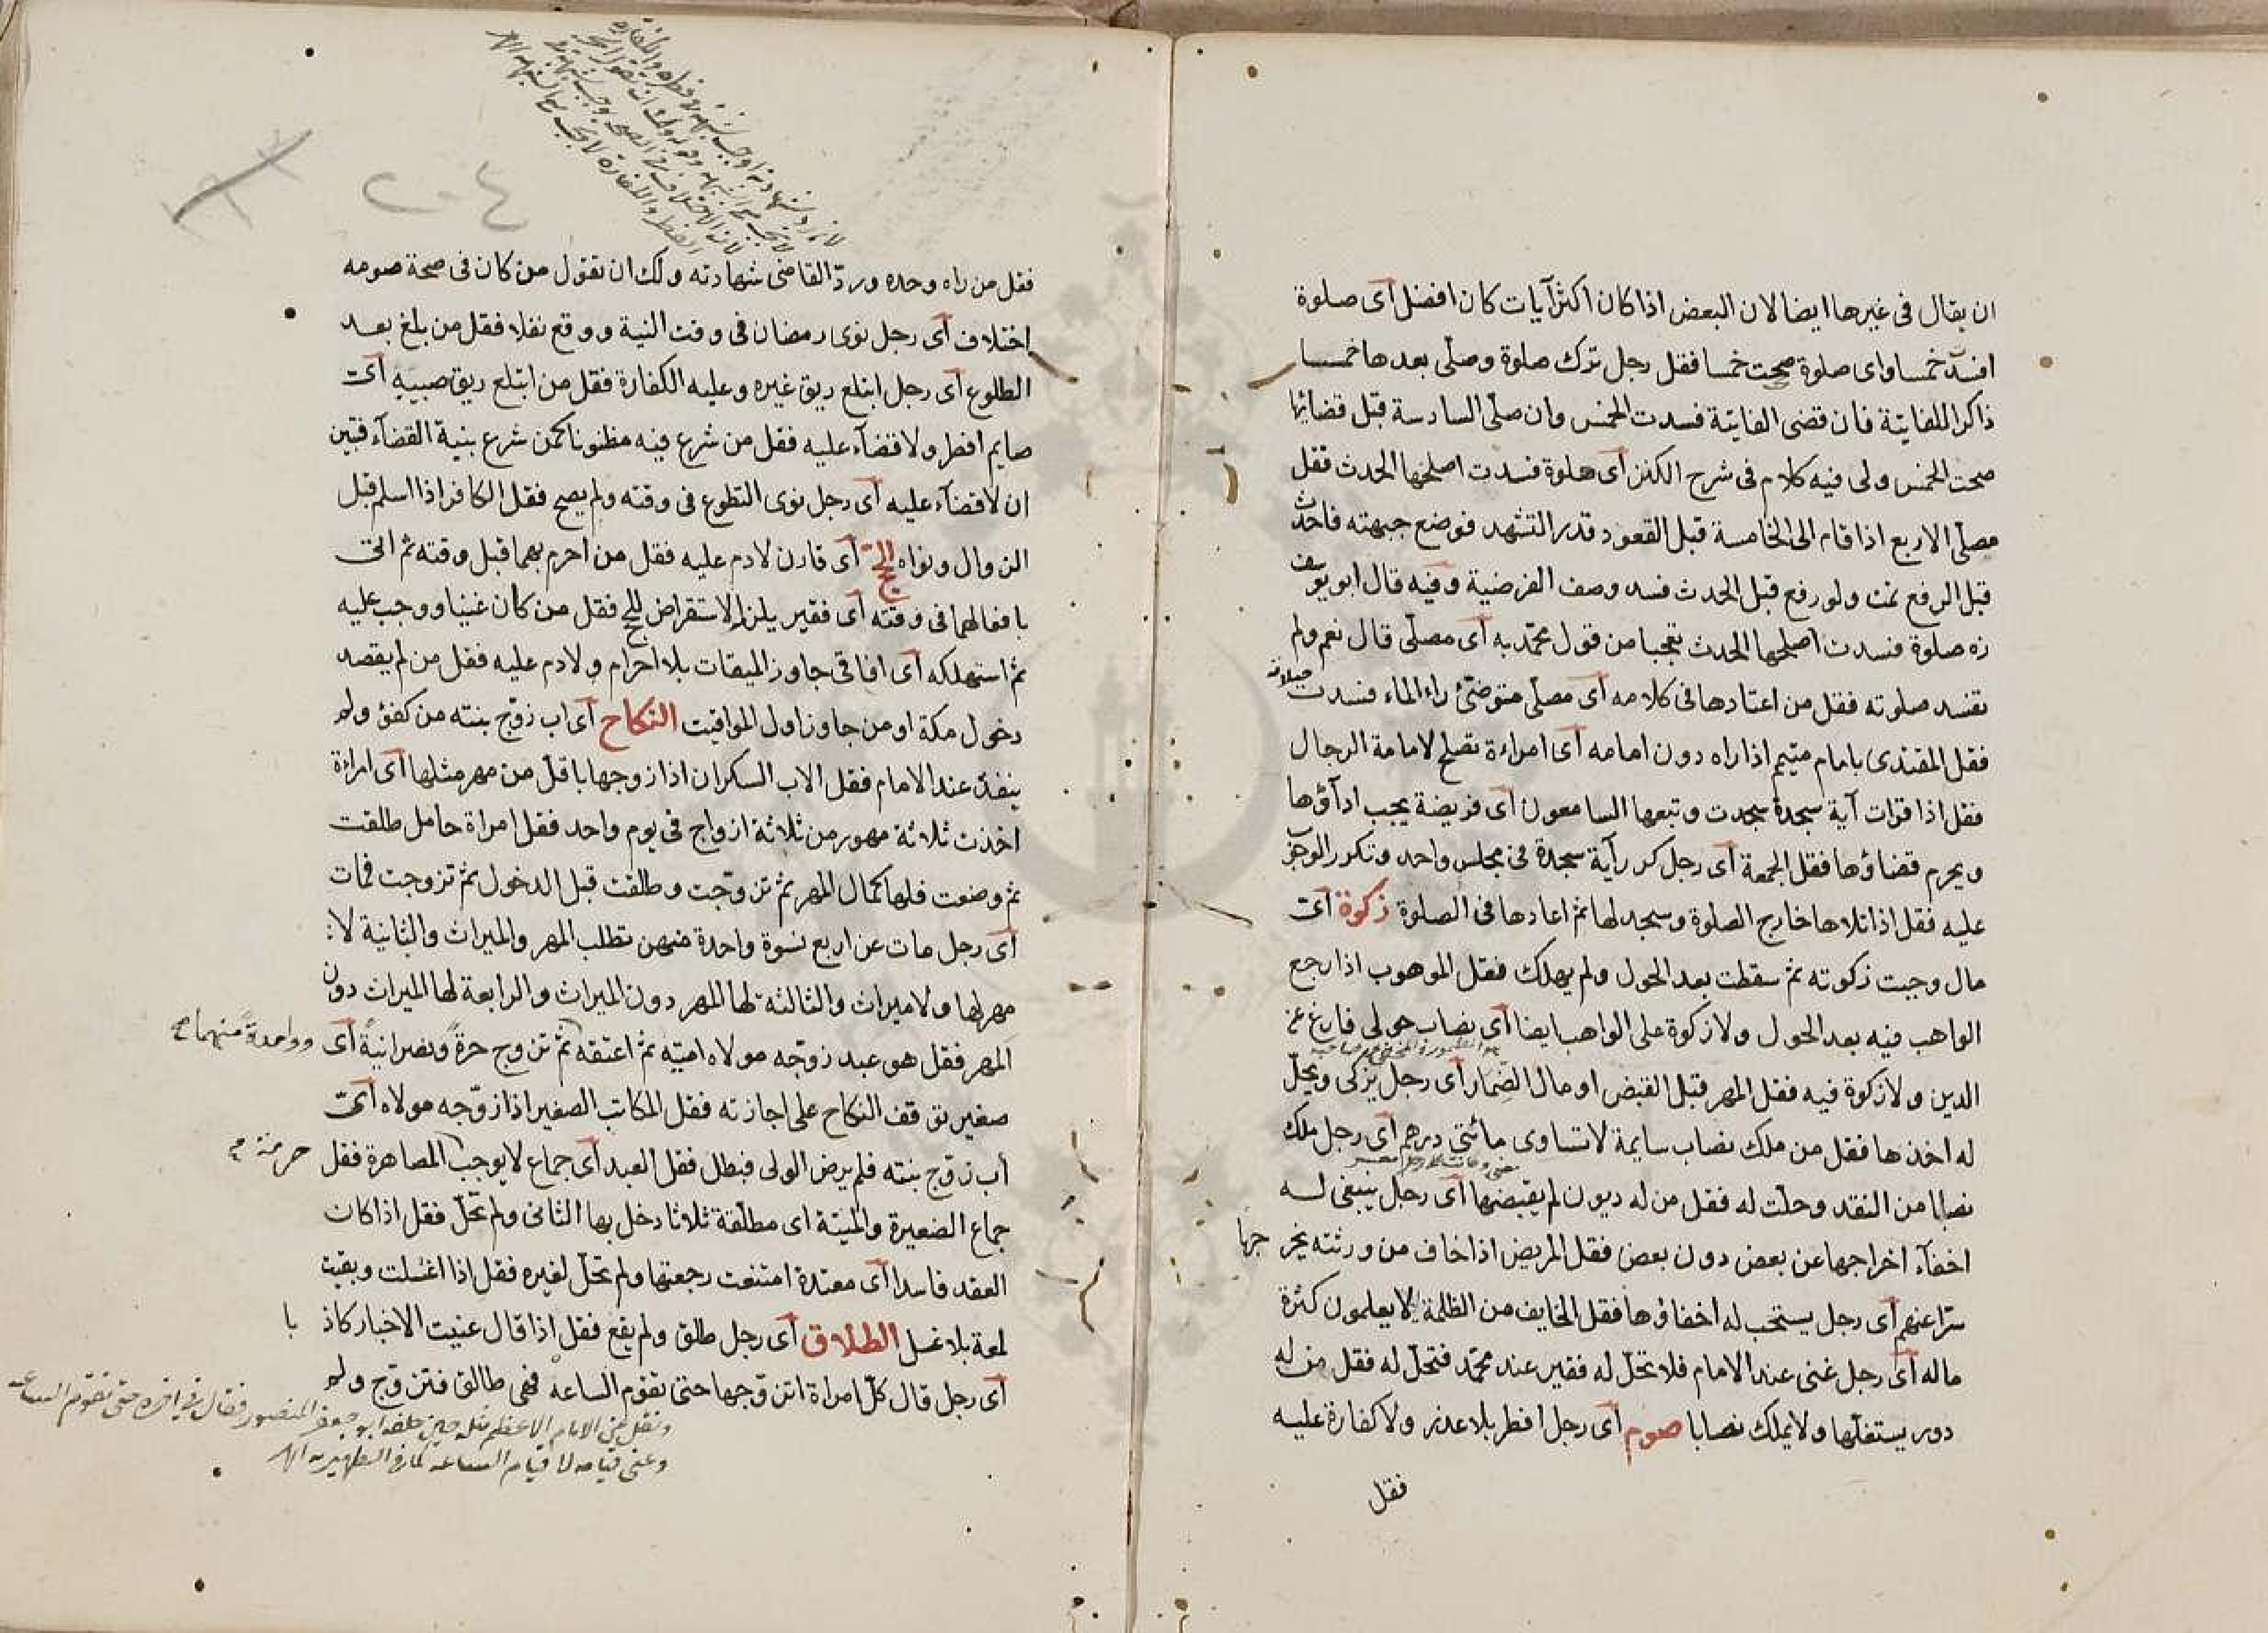 ان يقال فى غيرها ايضا لان البعض اذا كان اكثر آيات كان افضل اى صلوة
افسدت خمسا واى صلوة صححت خمسا فقل رجل ترك صلوة وصلّى بعدها خمسا
ذاكرا للفايتة فان قضى الفايتة فسدت الخمس وان صلّى السادسة قبل قضائها
صحت الخمس ولى فيه كلام فى شرح الكنز اى صلوة فسدت اصلحها الحدث فقل
مصلّى الاربع اذا قام الى الخامسة قبل القعود قدر التشهد فوضع جبهته فاحدث
قبل الرفع تمت ولو رفع قبل الحدث فسد وصف الفرضية وفيه قال ابو يوسف
زه صلوة فسدت اصلحها الحدث تعجبا من قول محمّد به اى مصلّى قال نعم ولم
تفسد صلوته فقل من اعتادها فى كلامه اى مصلّى متوضئ راء الماء فسدت صلاته
فقل المقتدى بامام متيمم اذا راه دون امامه اى امراءة تصلح لامامة الرجال
فقل اذا قرات آية سجدة سجدت وتبعها السامعون اى فريضة يجب ادآؤها
ويحرم قضاؤها فقل الجمعة اى رجل كرر آية سجدة فى مجلس واحد وتكرر الوجوب
عليه فقل اذا تلاها خارج الصلوة وسجد لها ثم اعادها فى الصلوة زكوة اى
مال وجبت زكوته ثم سقطت بعد الحول ولم يهلك فقل الموهوب اذا رجع
الواهب فيه بعد الحول ولا زكوة على الواهب ايضا اى نصاب حولى فارغ عن
الدين ولا زكوة فيه فقل المهر قبل القبض او مال الضمار اى رجل يزكى ويحلّ
له اخذها فقل من ملك نصاب سايمة لا تساوى مائتى درهم اى رجل ملك
نصابا من النقد وحلّت له فقل من له ديون لم يقبضها اى رجل ينبغى له
اخفآء اخراجها عن بعض دون بعض فقل المريض اذا خاف من ورثته يخرجها
سرّا عنهم اى رجل يستحب له اخفاؤها فقل الخايف من الظلمة لا يعلمون كثرة
ماله اى رجل غنى عند الامام فلا تحلّ له فقير عند محمّد فتحلّ له فقل من له
دور يستغلّها ولا يملك نصابا صوم اى رجل افطر بلا عذر ولا كفارة عليه
فقل
٢٠٤
فقل من راه وحده وردّ القاضى شهادته ولك ان تقول من كان فى صحة صومه
اختلاف اى رجل نوى رمضان فى وقت النية ووقع نفلا فقل من بلغ بعد
الطلوع اى رجل ابتلع ريق غيره وعليه الكفارة فقل من ابتلع ريق حبيبه اى
صايم افطر ولا قضآء عليه فقل من شرع فيه مظنونا كمن شرع بنية القضآء فتبين
ان لا قضآء عليه اى رجل نوى التطوع فى وقته ولم يصح فقل الكافر اذا اسلم قبل
الزوال ونواه الحج اى قارن لا دم عليه فقل من احرم بهما قبل وقته ثم اتى
بافعالهما فى وقته اى فقير يلزمه الاستقراض للحج فقل من كان غنيا ووجب عليه
ثم استهلكه اى افاقى جاوز الميقات بلا احرام ولا دم عليه فقل من لم يقصد
دخول مكة او من جاوز اول المواقيت النكاح اى اب زوّج بنته من كفئ ولم
ينفذ عند الامام فقل الاب السكران اذا زوجها باقلّ من مهر مثلها اى امراءة
اخذت ثلاثة مهور من ثلاثة ازواج فى يوم واحد فقل امراة حامل طلقت
ثم وضعت فلها كمال المهر ثم تزوّجت وطلقت قبل الدخول ثم تزوجت فمات
اى رجل مات عن اربع نسوة واحدة منهن تطلب المهر والميراث والثانية لا
مهر لها ولا ميراث والثالثة لها المهر دون الميراث والرابعة لها الميراث دون
المهر فقل هو عبد زوّجه مولاه امتيه ثم اعتقه ثم تزوج حرة ونصرانية اى وواحدة منهما صح
صغير توقف النكاح على اجازته فقل المكاتب الصغير اذا زوّجه مولاه اى
أب زوّج بنته فلم يرض الولى فبطل فقل العبد اى جماع لا يوجب المصاهرة فقل حرمة صح
جماع الصغيرة والميتة اى مطلّقة ثلاثا دخل بها الثانى ولم تحلّ فقل اذا كان
العقد فاسدا اى معتدة امتنعت رجعتها ولم تحلّ لغيره فقل اذا اغتسلت وبقيت
لمعة بلا غسل الطلاق اى رجل طلق ولم يقع فقل اذا قال عنيت الاخبار كاذبا
اى رجل قال كلّ امراة اتزوّجها حتى تقوم الساعة فهى طالق فتزوّج ولم
ونقل عن الامام الاعظم مثله حين حلفه ابو جعفر المنصور فقال فى اخره حتى تقوم الساعة
وعنى قيامه لا قيام الساعة كما فى الظهيرية اه